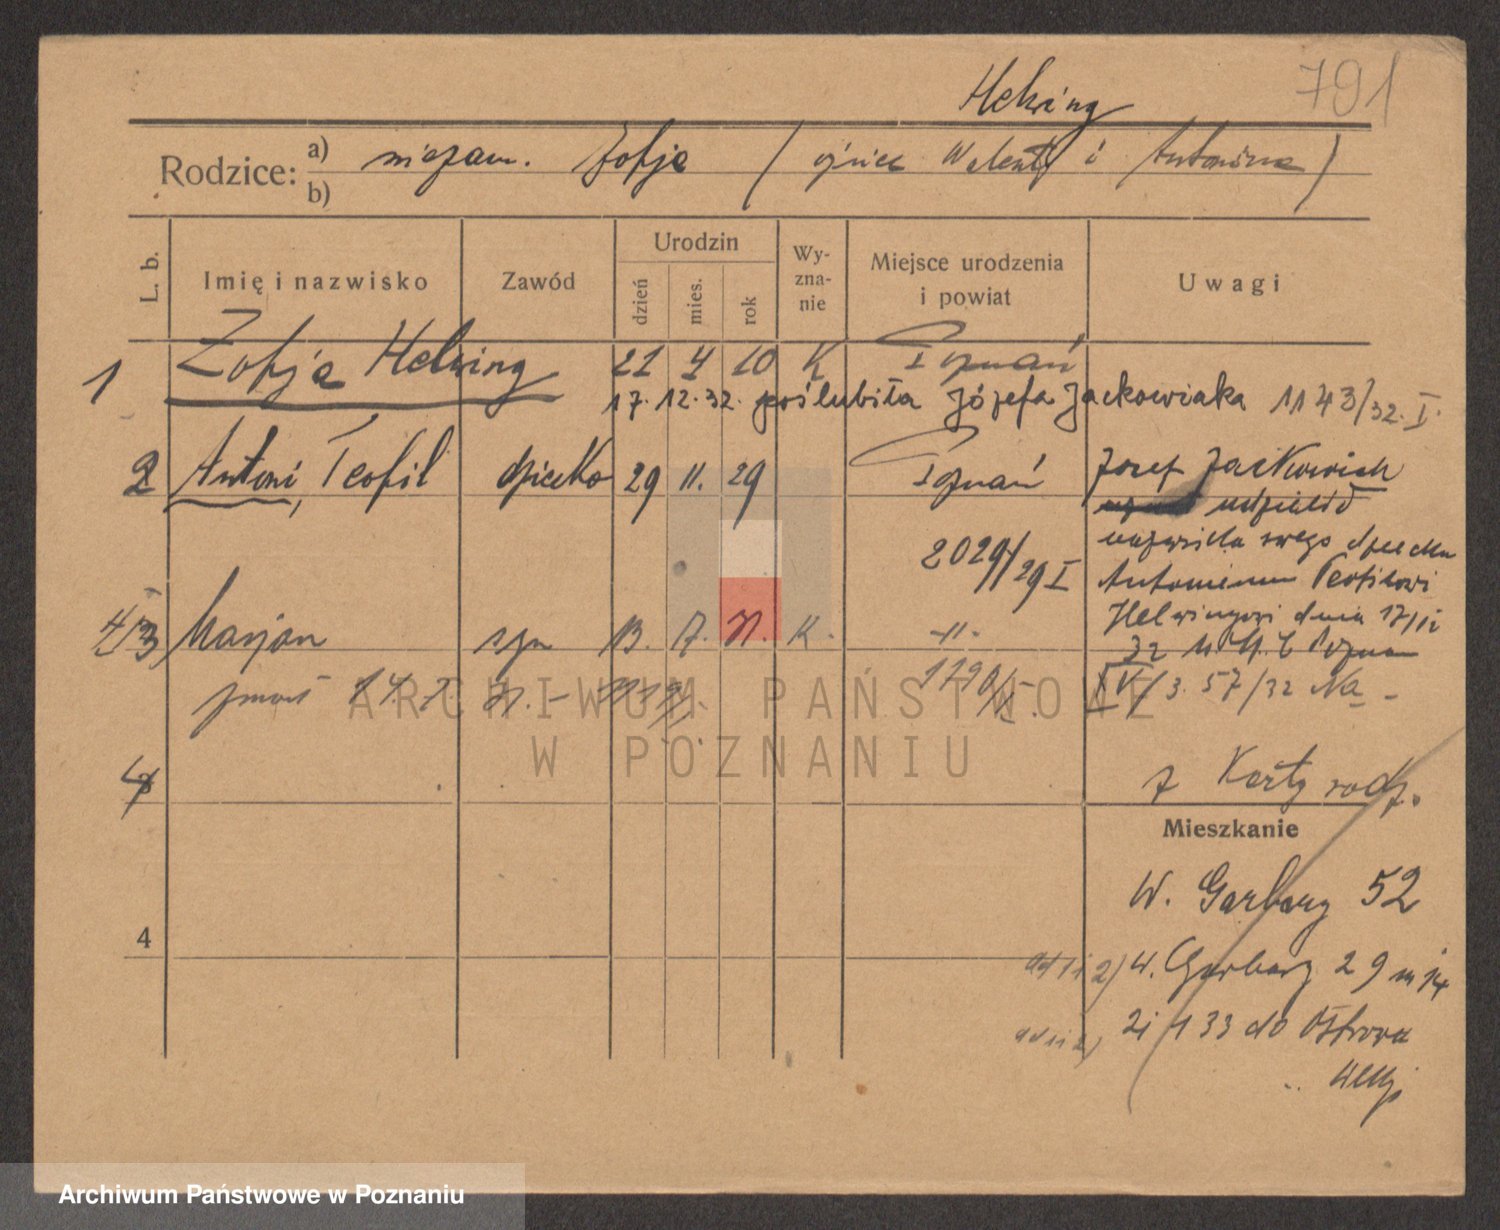 Helwing
791
Rodzice: a) niezam. Zofja (ojciec Walenty i Antonina)
b)
L. b.
Imię i nazwisko
Zawód
Urodzin
dzień
mies.
rok
Wy-
zna-
nie
Miejsce urodzenia
i powiat
Uwagi
1 Zofja Helwing 21 4 10 K Poznań
17. 12. 32. poślubiła Józefa Jackowiaka 1143/32. I.
2 Antoni, Teofil dziecko 29 11. 29 Poznań
Józef Jackowiak
udzielił
nazwiska swego dziecku
2029/29 I
Antoniemu Teofilowi
Helwingowi dnia 17/12
3 Marjan syn 13. 7. 31. K. -"-
32 w U. S. Poznań
zmarł 14. 7. 31. 
1190/
IV/3. 57/32 Na
z Karty rodz.
4
Mieszkanie
W. Garbary 52
4
ad 1 i 2) W. Garbary 29 m 14
ad 1 i 2) 2i 1 33 do Ostrowa
Wlkp
ARCHIWUM PAŃSTWOWE
W POZNANIU
Archiwum Państwowe w Poznaniu